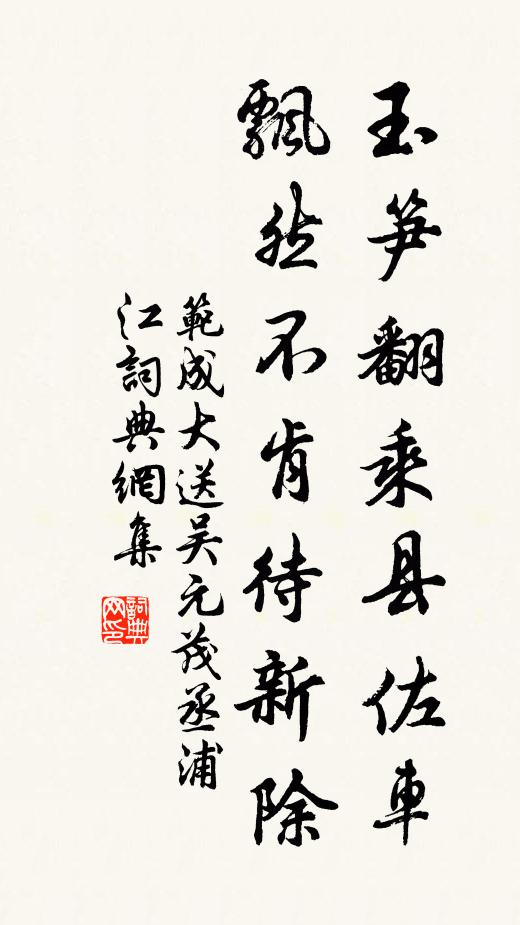 玉笋翻乘县佐車
飄然不肯待新除
範成大送吴元茂丞浦
江詞典網集
詞典
网印